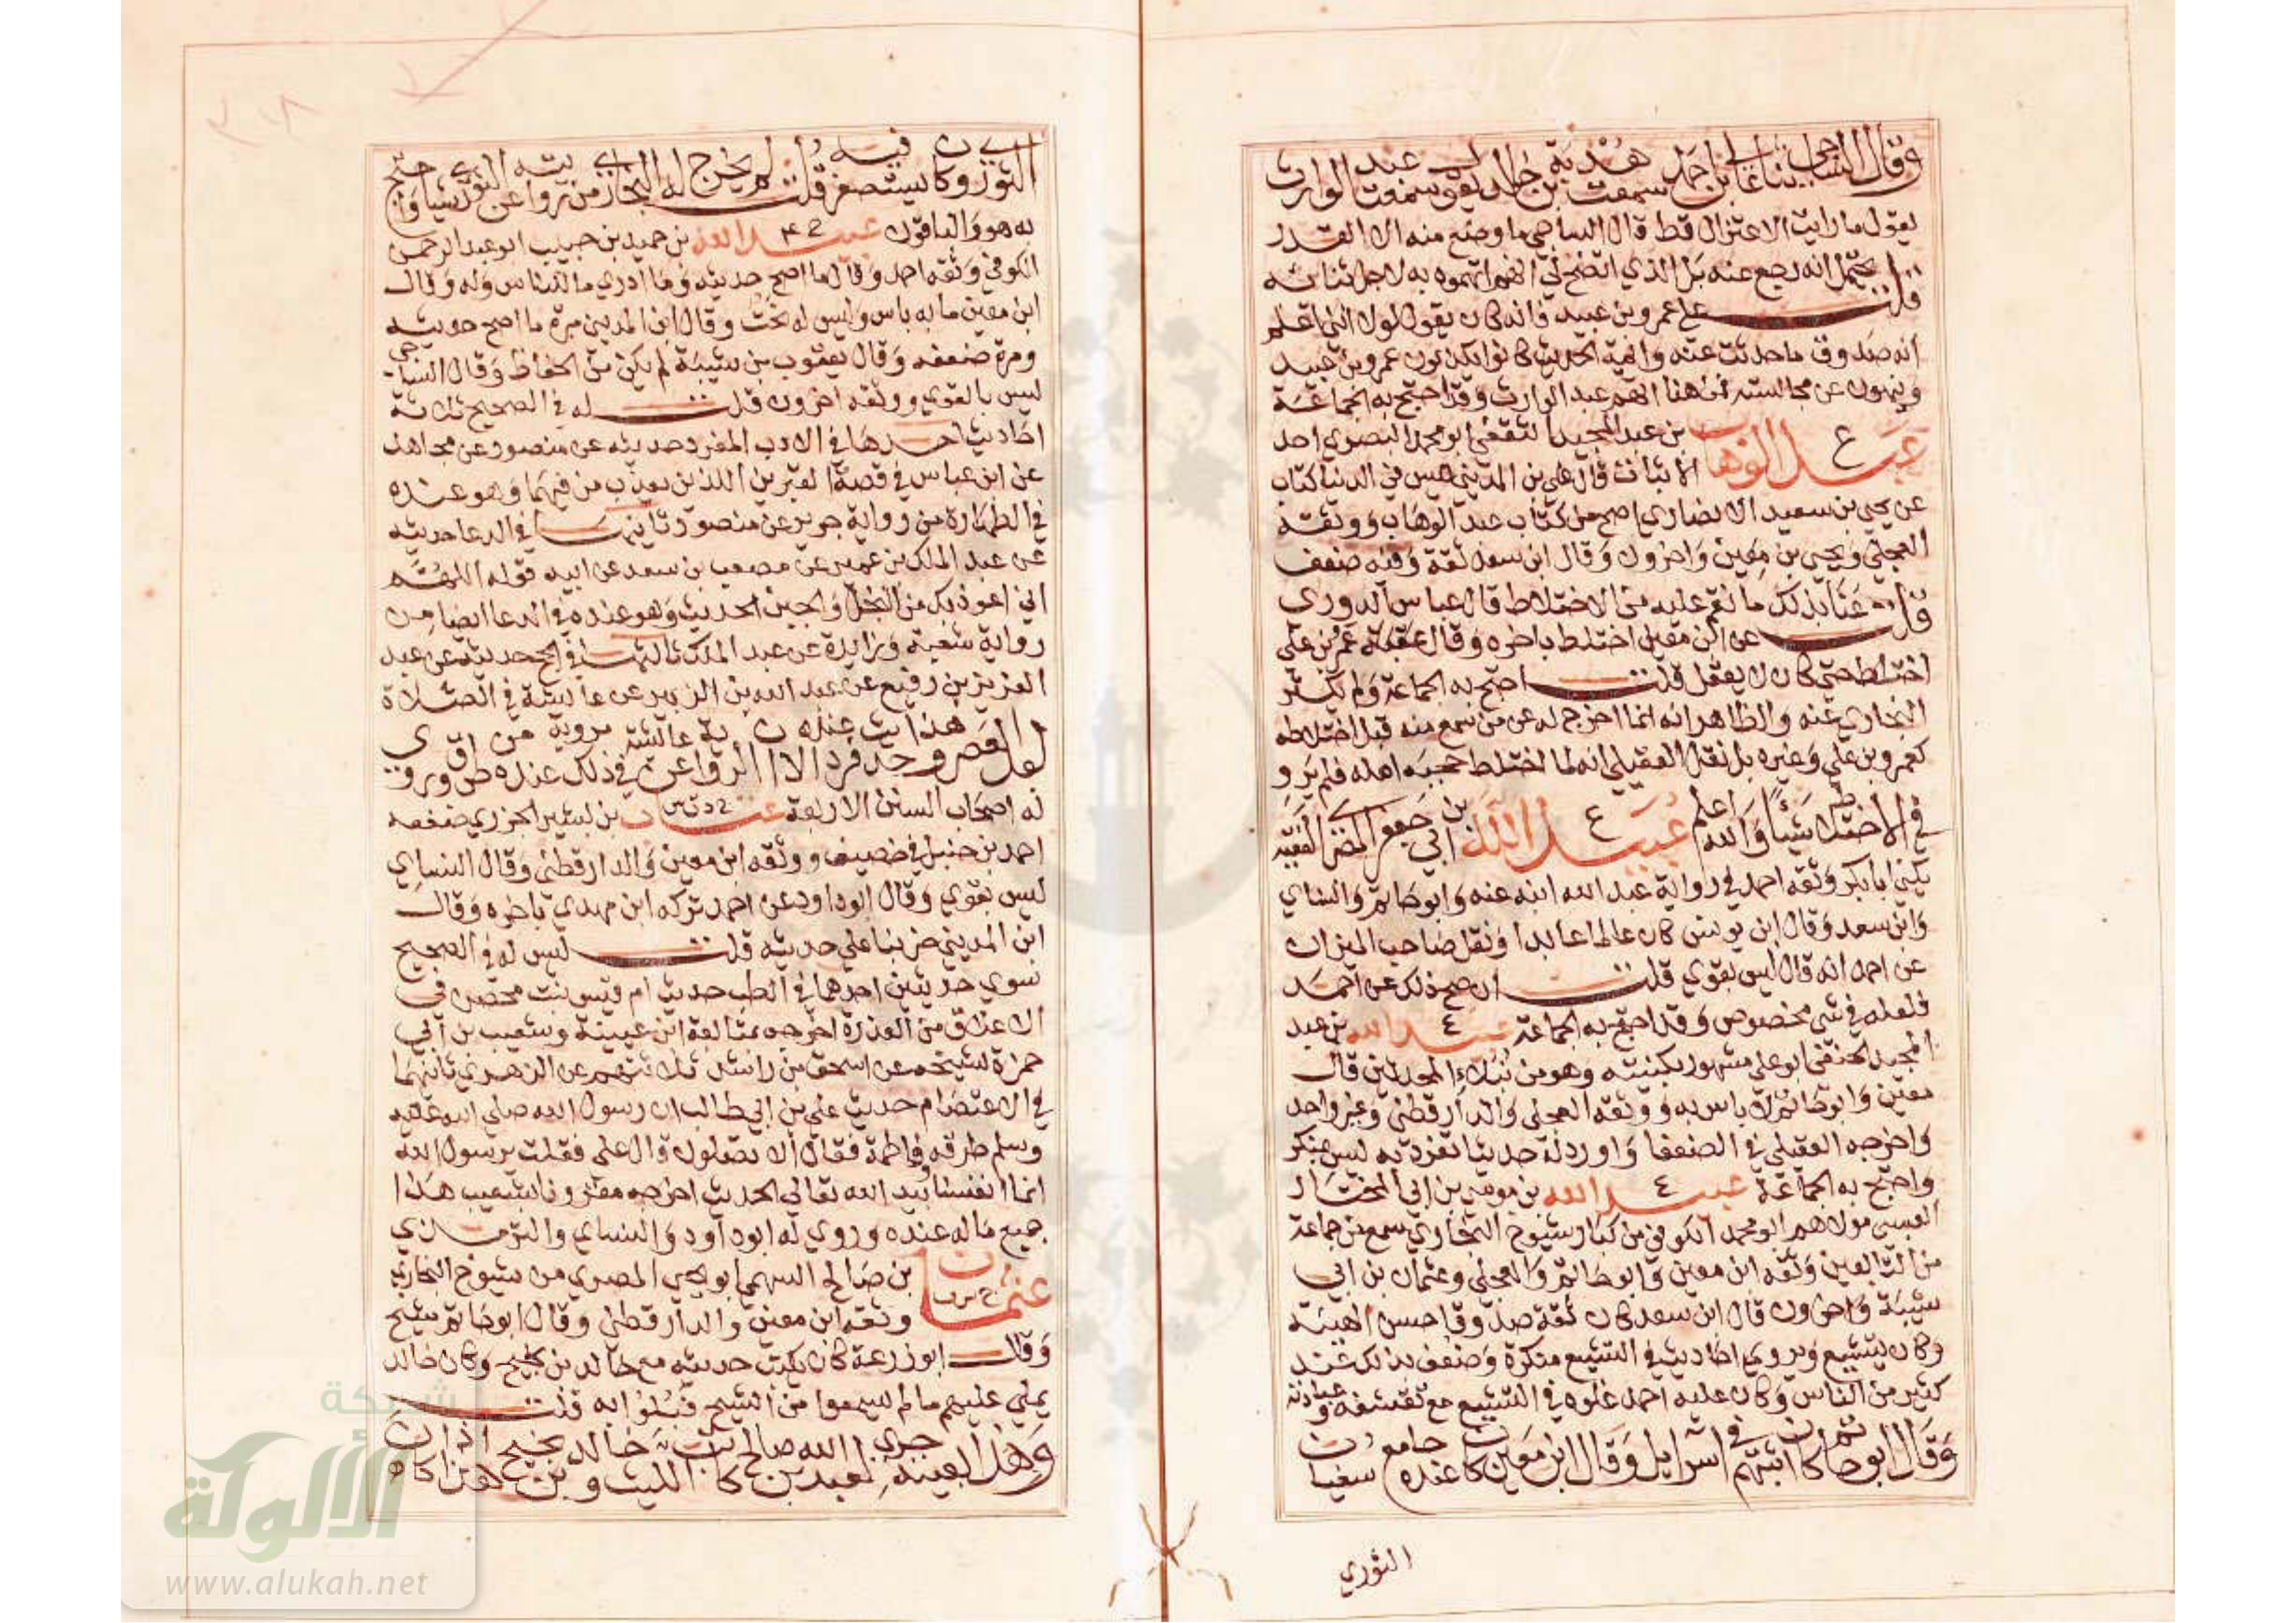 وقال الساجي ثنا علي بن احمد سمعت هدبة بن خالد يقول سمعت عبد الوارث
يقول ما رايت الاعتزال قط قال الساجي ما وضع منه الا القدر
قلت يحتمل انه رجع عنه بل الذي اتضح لي انهم اتهموه به لاجل ثنائه
على عمرو بن عبيد فانه كان يقول لولا انني اعلم
انه صدوق ما حدثت عنه وائمة الحديث كانوا يكذبون عمرو بن عبيد
وينهون عن مجالسته فمن هنا اتهم عبد الوارث وقد احتج به الجماعة
ع عبد الوهاب بن عبد المجيد الثقفي ابو محمد البصري احد
الاثبات قال علي بن المديني ليس في الدنيا كتاب
عن يحيى بن سعيد الانصاري اصح من كتاب عبد الوهاب ووثقه
العجلي ويحيى بن معين واخرون وقال ابن سعد ثقة وفيه ضعف
قلت عنا بذلك ما نقم عليه من الاختلاط قال عباس الدوري
عن ابن معين اختلط باخره وقال عقبة عمرو بن علي
اختلط حتى كان لا يعقل قلت احتج به الجماعة ولم يكثر
البخاري عنه والظاهر انه انما اخرج له عن من سمع منه قبل اختلاطه
كعمرو بن علي وغيره بل نقل العقيلي انه لما اختلط حجبه اهله فلم يرو
في الاختلاط شيئا والله اعلم ع عبيد الله بن ابي جعفر المصري الفقيه
يكنى ابا بكر وثقه احمد في رواية عبد الله ابنه عنه وابو حاتم والنساي
وابن سعد وقال ابن يونس كان عالما عابدا ونقل صاحب الميزان
عن احمد انه قال ليس بقوي قلت ان صح ذلك عن احمد
فلعله في شي مخصوص وقد احتج به الجماعة ع عبيد الله بن عبد
المجيد الحنفي ابو علي مشهور بكنيته وهو من نبلاء المحدثين قال
معين وابو حاتم لا باس به ووثقه العجلي والدارقطني وغير واحد
واخرجه العقيلي في الضعفا واورد له حديثا تفرد به ليس بمنكر
واحتج به الجماعة ع عبيد الله بن موسى بن ابي المختار
العبسي مولاهم ابو محمد الكوفي من كبار شيوخ البخاري سمع من جماعة
من التابعين وثقه ابن معين وابو حاتم والعجلي وعثمان بن ابي
شيبة واخرون قال ابن سعد كان ثقة صدوقا حسن الهيئة
وكان يتشيع ويروي احاديث في التشيع منكرة وضعف بذلك عند
كثير من الناس وكان عليه احمد غلوه في التشيع مع تقشفه وعبادته
وقال ابو حاتم كان اثبتهم في اسرايل وقال ابن معين كان عنده جامع سفيان
الثوري
الثوري وكان يستصغر فيه قلت لم يخرج له البخاري من روايته عن الثوري شيا واحتج
به هو والباقون عبيد الله بن حميد بن حبيب ابو عبد الرحمن
الكوفي وثقه احمد وقال ما اصح حديثه وما ادري ما للناس وله وقال
ابن معين ما به باس وليس له بخت وقال ابن المديني مرة ما اصح حديثه
ومرة ضعفه وقال يعقوب بن شيبة لم يكن من الحفاظ وقال الساجي
ليس بالقوي ووثقه اخرون قلت له في الصحيح ثلاثة
احاديث احدها في الادب المفرد حديثه عن منصور عن مجاهد
عن ابن عباس في قصة القبرين اللذين يعذب من فيهما وهو عنده
في الطهارة من رواية جرير عن منصور ثانيها في الدعا حديثه
عن عبد الملك بن عمير عن مصعب بن سعد عن ابيه قوله اللهم
اني اعوذ بك من البخل والجبن الحديث وهو عنده في الدعا ايضا من
رواية شعبة وزايدة عن عبد الملك ثالثها في الحج حديثه عن عبد
العزيز بن رفيع عن عبد الله بن الزبير عن عايشة في الصلاة
بعد العصر وهذا الحديث فرد عنده الا ان الرواية عن عائشة في ذلك مروية عنده من طرق اخرى ويروي
له اصحاب السنن الاربعة عتاب بن بشير الجزري ضعفه
احمد بن حنبل في خصيف ووثقه ابن معين والدارقطني وقال النساي
ليس بقوي وقال ابو داود عن احمد تركه ابن مهدي باخره وقال
ابن المديني ضربنا على حديثه قلت ليس له في الصحيح
سوى حديثين احدهما في الطب حديث ام قيس بنت محصن في
الاعلاق من العذرة اخرجه بمتابعة ابن عيينة وشعيب بن ابي
حمزة لشيخه عن اسحق بن راشد ثلاثتهم عن الزهري ثانيهما
في الاعتصام حديث علي بن ابي طالب ان رسول الله صلى الله عليه
وسلم طرقه وفاطمة فقال الا تصلون قال علي فقلت يرسول الله
انما انفسنا بيد الله تعالى الحديث اخرجه مقرونا بشعيب هذا
جميع ماله عنده وروي له ابو داود والنساي والترمذي
عثمان بن صالح السهمي ابو يحيى المصري من شيوخ البخاري
وثقه ابن معين والدارقطني وقال ابو حاتم شيخ
وقال ابو زرعة كان يكتب حديثه مع خالد بن نجيح وكان خالد
يملي عليهم ما لم يسمعوا من الشيخ فبلوا به قلت
وهذا بعينه جرى لعبد الله بن صالح كاتب الليث وخالد بن نجيح هذا كان
شبكة
الألوكة
www.alukah.net